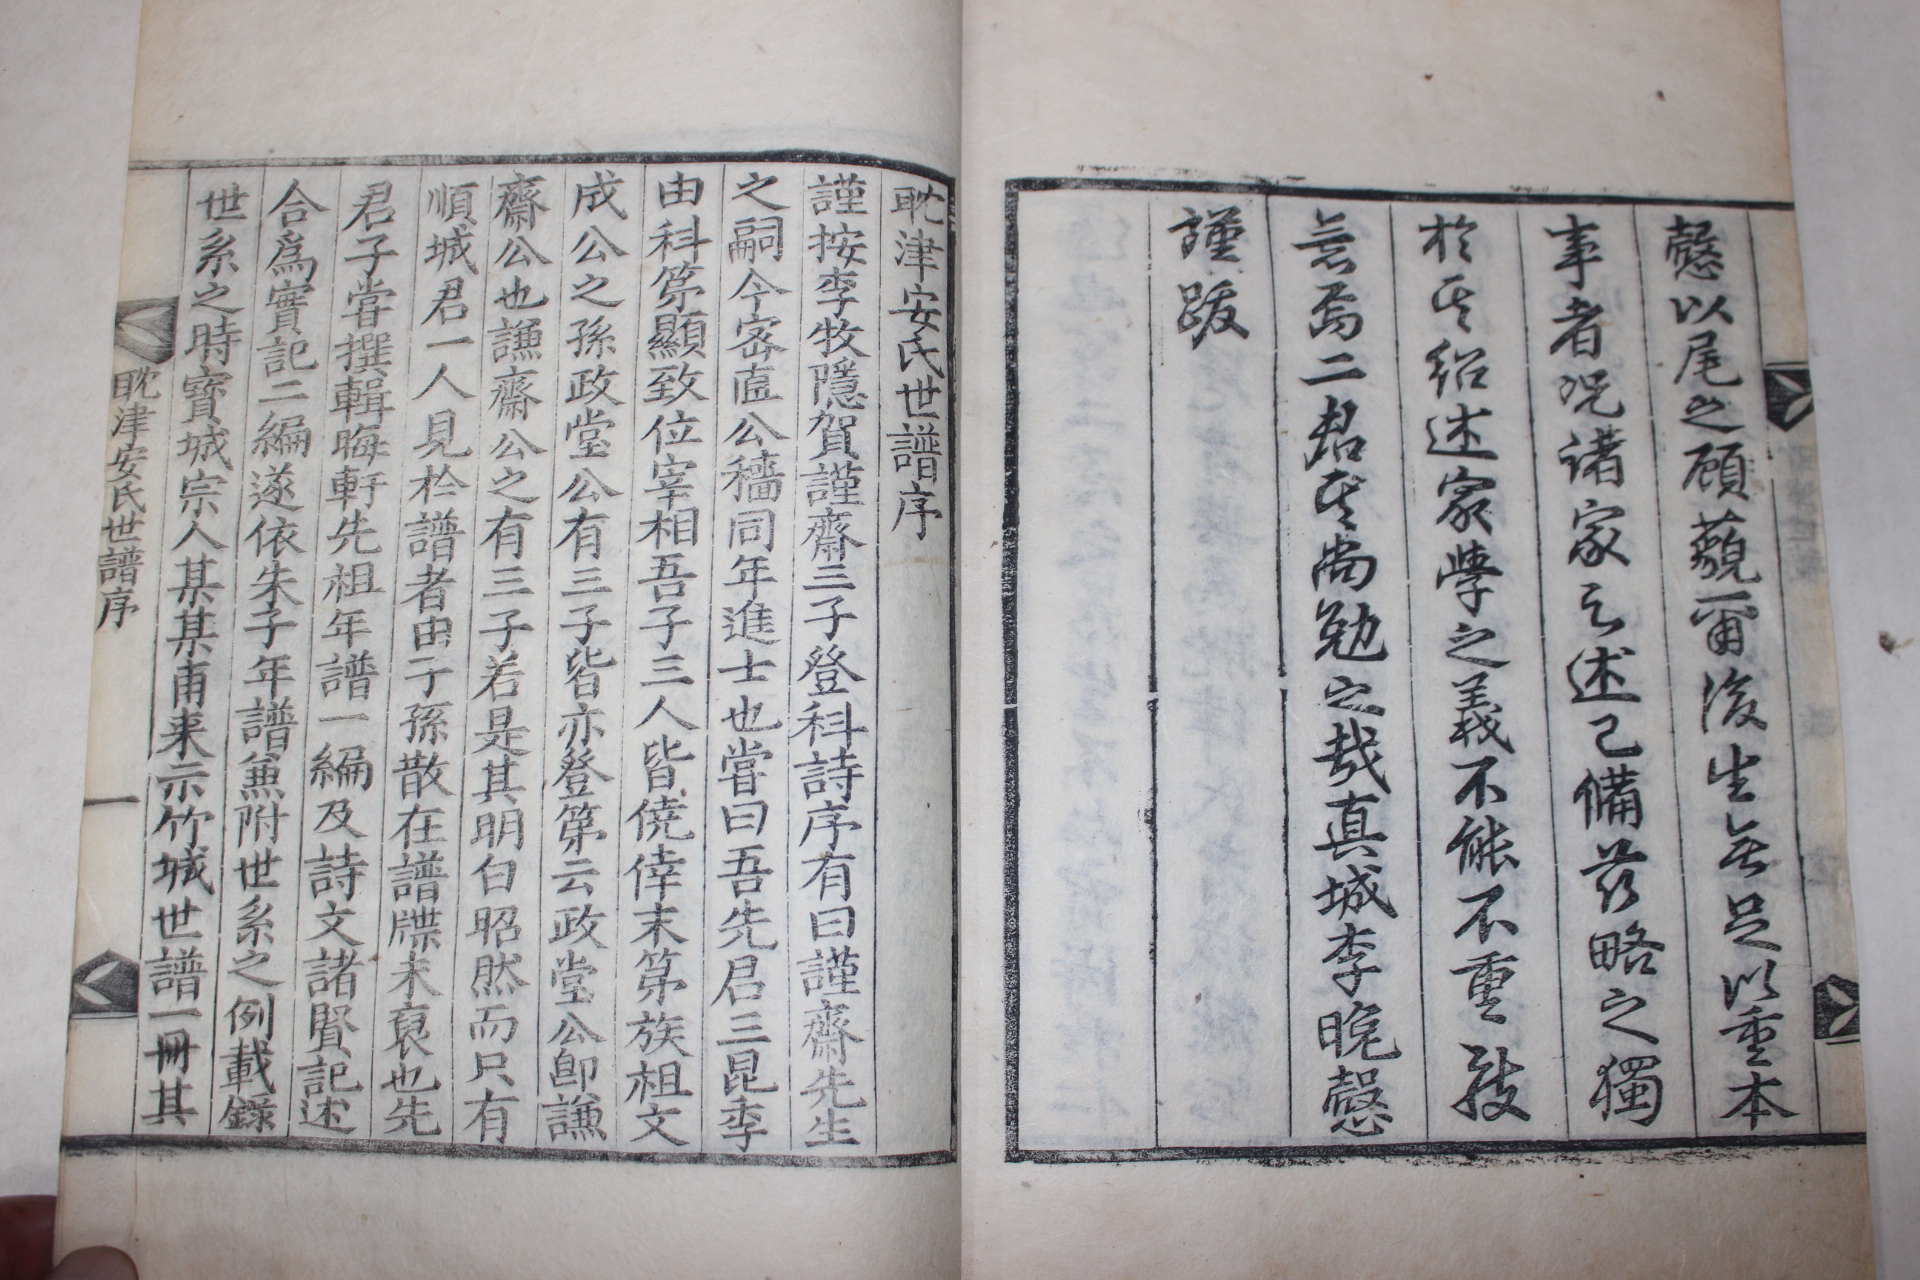 慇以尾之顧藐爾後生無足以重本
事者況諸家之述已備茲略之獨
於其紹述家學之義不能不重致
意焉二君其尚勉之哉真城李晩慇
謹跋
耽津安氏世譜序
謹按李牧隱賀謹齋三子登科詩序有曰謹齋先生
之嗣今密直公穡同年進士也嘗曰吾先君三昆季
由科第顯致位宰相吾子三人皆僥倖末第族祖文
成公之孫政堂公有三子皆亦登第云政堂公卽謙
齋公也謙齋公之有三子若是其明白昭然而只有
順城君一人見於譜者由子孫散在譜牒未裒也先
君子嘗撰輯晦軒先祖年譜一編及詩文諸賢記述
合爲實記二編遂依朱子年譜兼附世系之例載錄
世系之時寶城宗人某某甫来示竹城世譜一冊其
耽津安氏世譜序
一